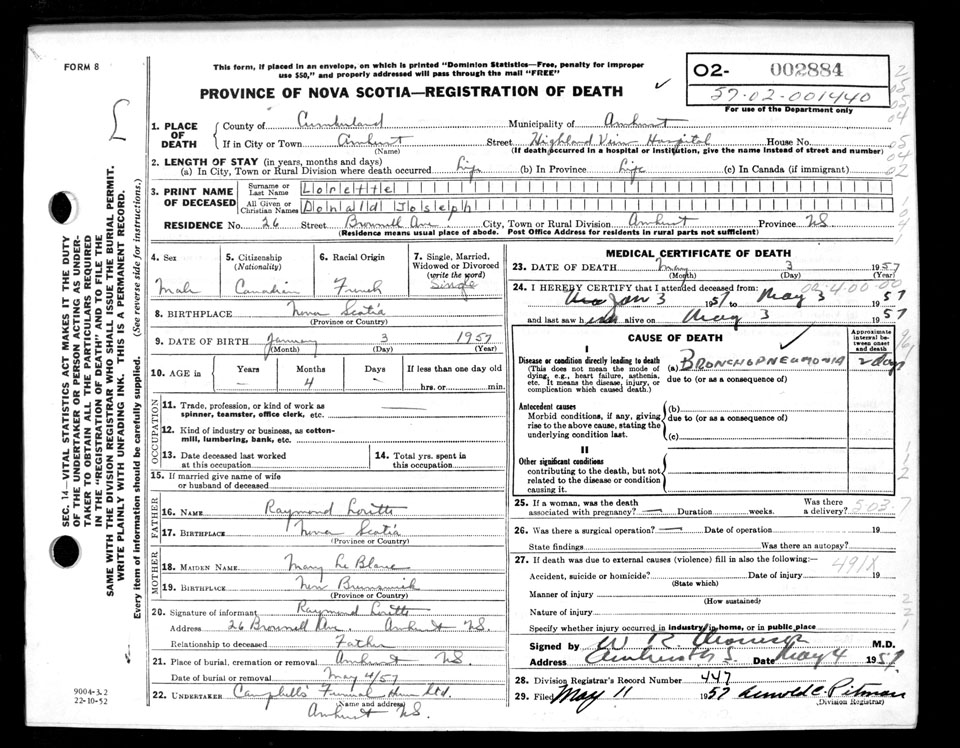 FORM 8
This form, if placed in an envelope, on which is printed "Dominion Statistics—Free, penalty for improper
use $50," and properly addressed will pass through the mail "FREE"
PROVINCE OF NOVA SCOTIA—REGISTRATION OF DEATH
02- 002884
57-02-001440
For use of the Department only
1. PLACE OF DEATH County of Cumberland Municipality of Amherst
If in City or Town Amherst Street Highland View Hospital House No.
(Name) (If death occurred in a hospital or institution, give the name instead of street and number)
2. LENGTH OF STAY (in years, months and days)
(a) In City, Town or Rural Division where death occurred Life (b) In Province Life (c) In Canada (if immigrant)
3. PRINT NAME OF DECEASED Surname or Last Name Lorette
All Given or Christian Names Donald Joseph
RESIDENCE No. 26 Street Brownell Ave. City, Town or Rural Division Amherst Province NS
(Residence means usual place of abode. Post Office Address for residents in rural parts not sufficient)
4. Sex Male
5. Citizenship (Nationality) Canadian
6. Racial Origin French
7. Single, Married, Widowed or Divorced (write the word) Single
8. BIRTHPLACE Nova Scotia
(Province or Country)
9. DATE OF BIRTH January 3 1957
(Month) (Day) (Year)
10. AGE in Years — Months 4 Days — If less than one day old
hrs. or min.
OCCUPATION
11. Trade, profession, or kind of work as
spinner, teamster, office clerk, etc.
12. Kind of industry or business, as cotton-
mill, lumbering, bank, etc.
13. Date deceased last worked
at this occupation
14. Total yrs. spent in
this occupation
15. If married give name of wife
or husband of deceased
FATHER
16. NAME Raymond Lorette
17. BIRTHPLACE Nova Scotia
(Province or Country)
MOTHER
18. MAIDEN NAME Mary Le Blanc
19. BIRTHPLACE New Brunswick
(Province or Country)
20. Signature of informant Raymond Lorette
Address 26 Brownell Ave. Amherst NS.
Relationship to deceased Father
21. Place of burial, cremation or removal Amherst NS.
Date of burial or removal May 4/57
22. UNDERTAKER Campbells' Funeral Home Ltd.
(Name and address)
Amherst NS.
MEDICAL CERTIFICATE OF DEATH
23. DATE OF DEATH May 3 1957
(Month) (Day) (Year)
24. I HEREBY CERTIFY that I attended deceased from:
Jan 3 1957 to May 3 1957
and last saw h alive on May 3 1957
CAUSE OF DEATH
Approximate interval between onset and death
I
Disease or condition directly leading to death
(This does not mean the mode of
dying, e.g., heart failure, asthenia,
etc. It means the disease, injury, or
complication which caused death.)
(a) BRONCHOPNEUMONIA 2 days
due to (or as a consequence of)
Antecedent causes
Morbid conditions, if any, giving
rise to the above cause, stating the
underlying condition last.
(b)
due to (or as a consequence of)
(c)
II
Other significant conditions
contributing to the death, but not
related to the disease or condition
causing it.
25. If a woman, was the death
associated with pregnancy? Duration weeks. Was there
a delivery?
26. Was there a surgical operation? Date of operation 19
State findings Was there an autopsy?
27. If death was due to external causes (violence) fill in also the following:—
491X
Accident, suicide or homicide? Date of injury 19
(State which)
Manner of injury
(How sustained)
Nature of injury
Specify whether injury occurred in industry, in home, or in public place
Signed by M.D.
Address Amherst N S. Date May 4 1957
28. Division Registrar's Record Number 447
29. Filed May 11 1957 Arnold C. Pitman
(Division Registrar)
SEC. 14—VITAL STATISTICS ACT MAKES IT THE DUTY
OF THE UNDERTAKER OR PERSON ACTING AS UNDER-
TAKER TO OBTAIN ALL THE PARTICULARS REQUIRED
IN THE "REGISTRATION OF DEATH" AND TO FILE THE
SAME WITH THE DIVISION REGISTRAR WHO SHALL ISSUE THE BURIAL PERMIT.
WRITE PLAINLY WITH UNFADING INK. THIS IS A PERMANENT RECORD.
Every item of information should be carefully supplied. (See reverse side for instructions.)
9004-3.2
22-10-52